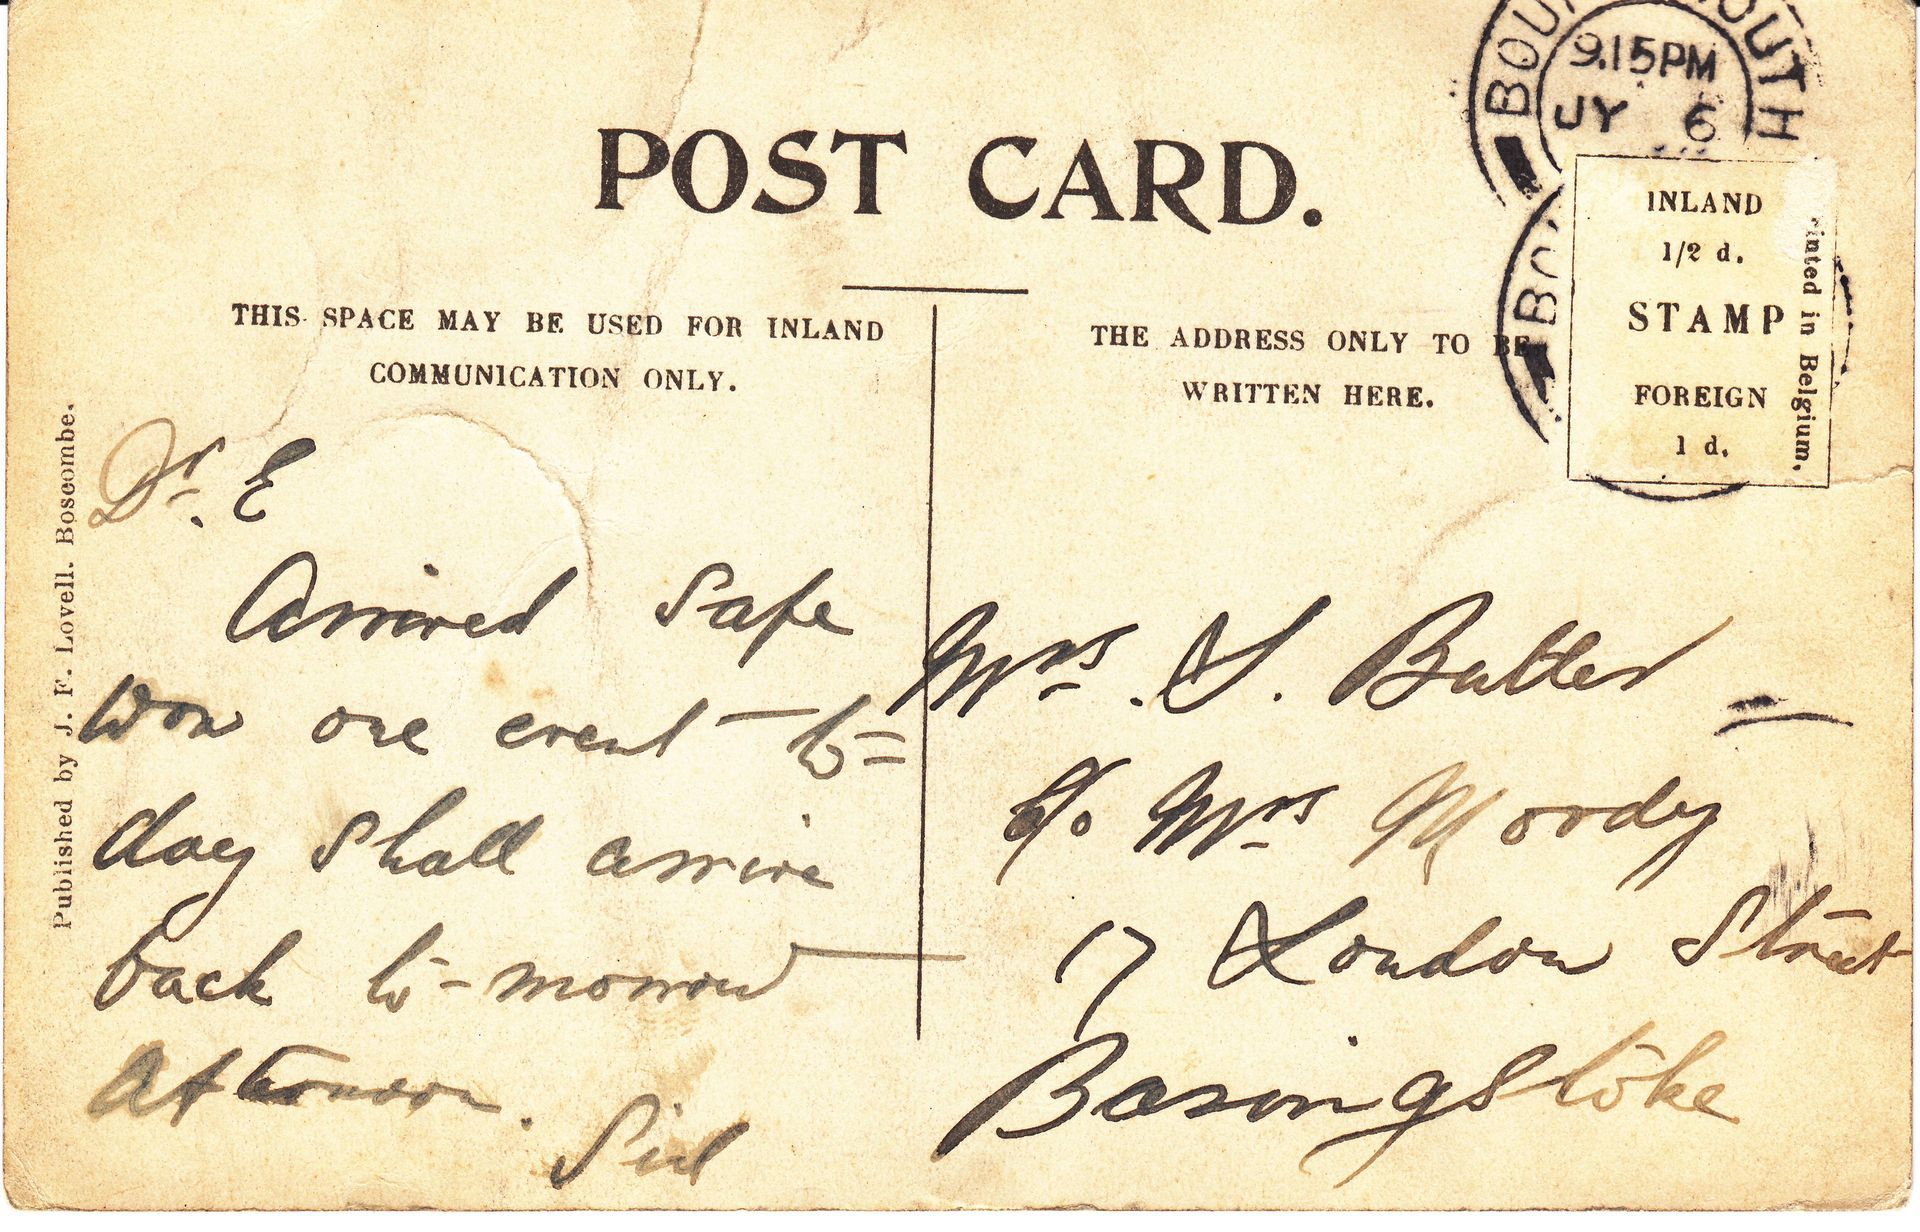 BOU MOUTH
9.15PM
JY 6
POST CARD.
INLAND
1/2 d.
STAMP
FOREIGN
1 d.
rinted in Belgium.
BO
THIS SPACE MAY BE USED FOR INLAND
COMMUNICATION ONLY.
THE ADDRESS ONLY TO BE
WRITTEN HERE.
Published by J. F. Lovell. Boscombe.
Dr. E
Arrived Safe
Won one event to=
day shall arrive
back to-morrow
Afternoon.
Sid
Mrs. S. Butler
c/o Mrs Moody
17 London Street
Basingstoke